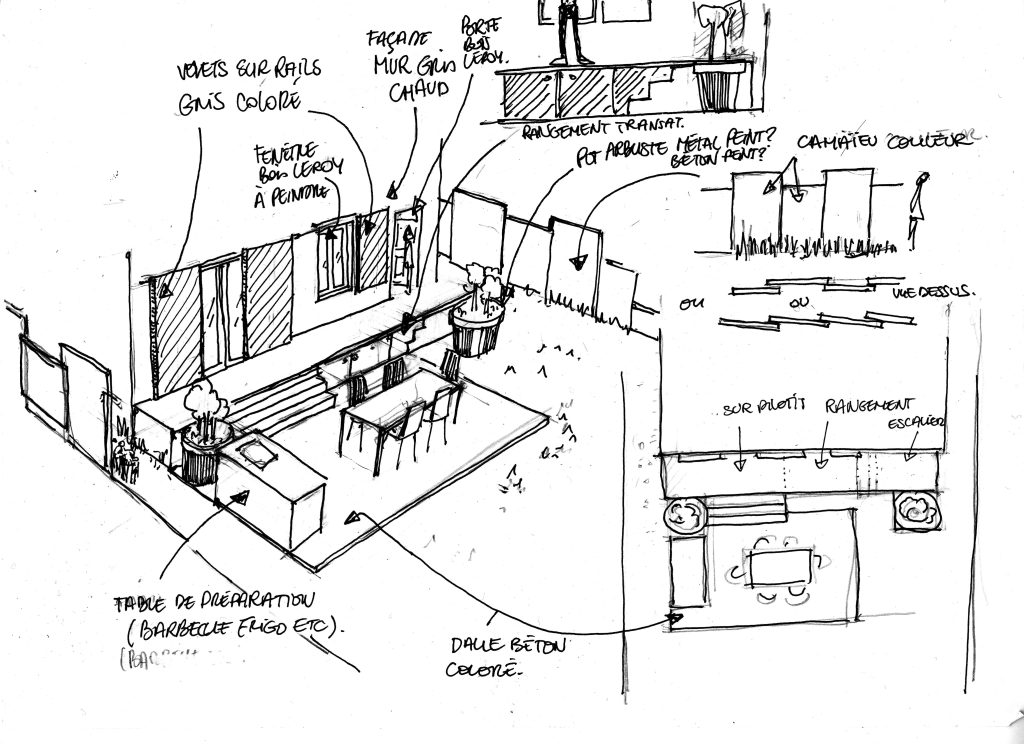 VOLETS SUR RAILS
GRIS COLORÉ
FAÇADE
MUR GRIS
CHAUD
PORTE
BOIS
LEROY.
FENÊTRE
BOIS LEROY
À PEINDRE
RANGEMENT TRANSAT.
POT ARBUSTE MÉTAL PEINT?
BÉTON PEINT?
CAMAÏEU COULEUR.
OU
OU
VUE DESSUS.
SUR PILOTIT
RANGEMENT
ESCALIER
TABLE DE PRÉPARATION
(BARBECUE FRIGO ETC).
(BARBECUE
DALLE BÉTON
COLORÉ.